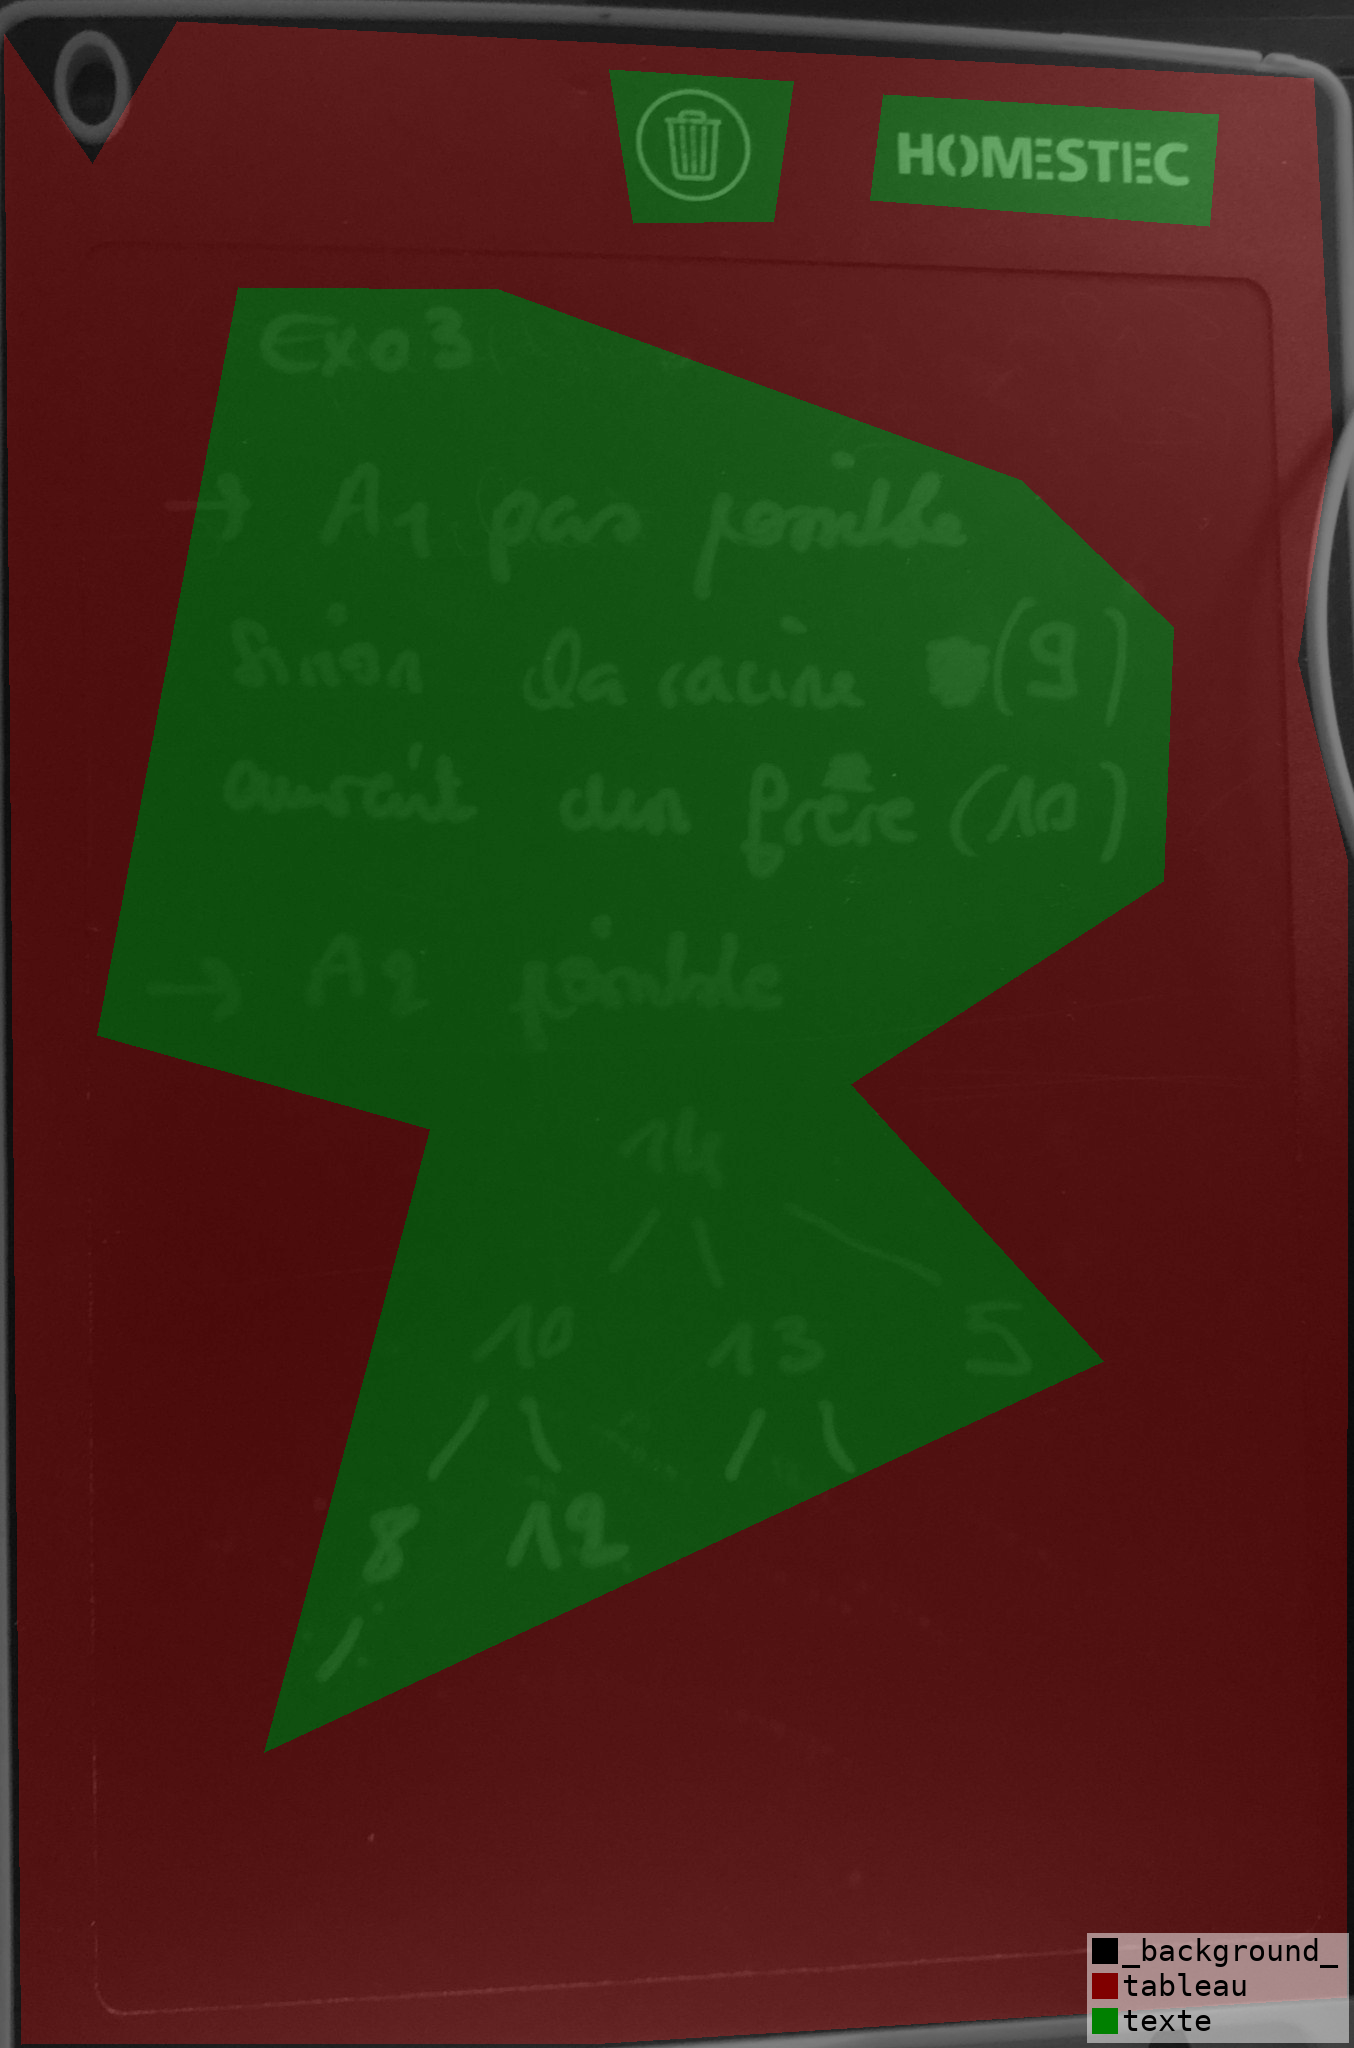 HOMESTEC
Exo 3
→ A1 pas possible
Sinon la racine (9)
aurait un frère (10)
→ A2 possible
14
10 13 5
8 12
_background_
tableau
texte